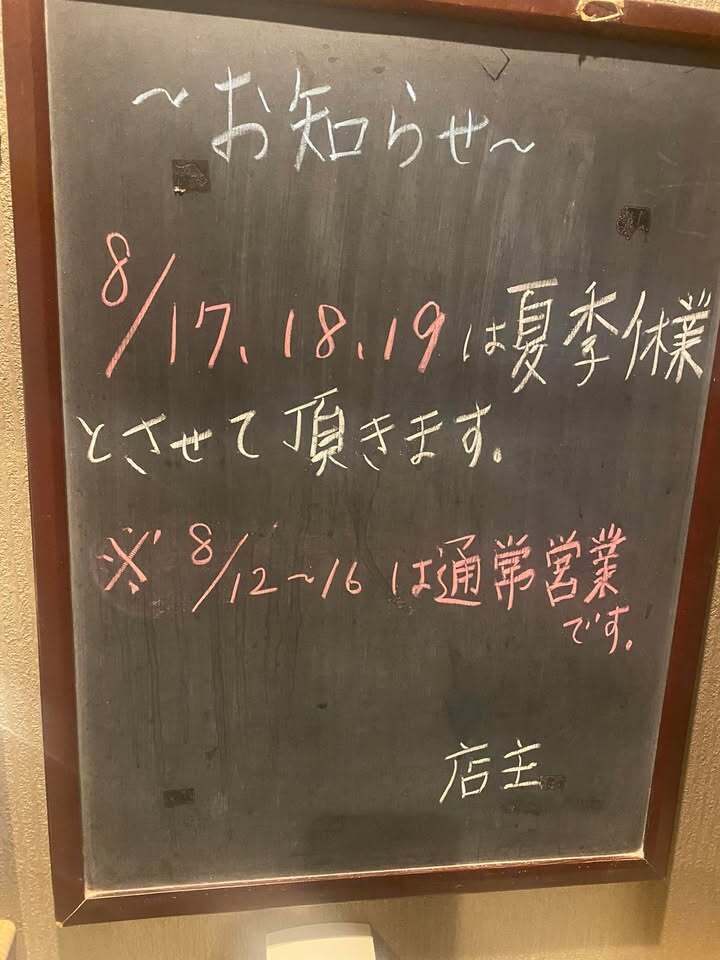 ～お知らせ～
8/17、18、19は夏季休業
とさせて頂きます。
※ 8/12～16は通常営業
です。
店主